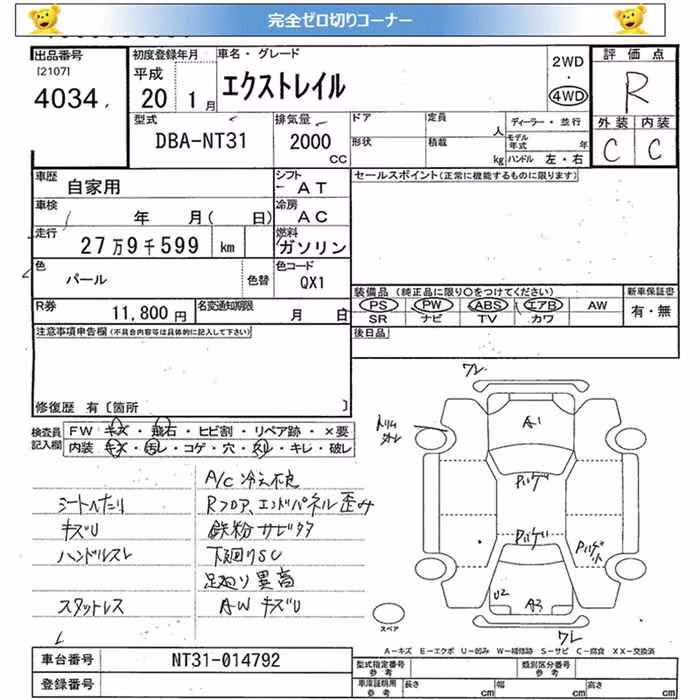 完全ゼロ切りコーナー
出品番号 初度登録年月 車名・グレード 2WD ・ 4WD 評価点
[2107] 4034 平成 20 1月 エクストレイル R
型式 排気量 ドア 定員 人 ディーラー・並行 外装 内装
DBA-NT31 2000 CC 形状 積載 kg モデル年式 年 C C
ハンドル 左・右
車歴 自家用 シフト AT セールスポイント(正常に機能するものに限ります)
車検 年 月( 日) 冷房 AC
走行 27万9千599 km 燃料 ガソリン
色 パール 色替 色コード QX1
装備品(純正品に限り○をつけてください) 新車保証書
R券 11,800円 名変通知期限 月 日 PS PW ABS エアB AW 有・無
SR ナビ TV カワ
注意事項申告欄(不具合内容等は具体的に記入して下さい) 後日品
修復歴 有〔箇所 〕
検査員記入欄 FW キズ・飛石・ヒビ割・リペア跡・×要
内装 キズ・汚レ・コゲ・穴・スレ・キレ・破レ
A/C冷え不良
シートへたり Rフロア、エンドパネル歪み
キズU 鉄粉サビタタ
ハンドルスレ 下廻りSC
足廻り異音
スタットレス AWキズU
ワレ
トリム
A1
Pハゲ
Pハゲ Pハゲ小
U2 A3
ワレ
スペア
A-キズ E-エクボ U-凹み W-補修跡 S-サビ C-腐食 XX-交換済
車台番号 NT31-014792 型式指定番号 参考 類別区分番号 参考
登録番号 車庫証明用 参考 長さ cm 幅 cm 高さ cm